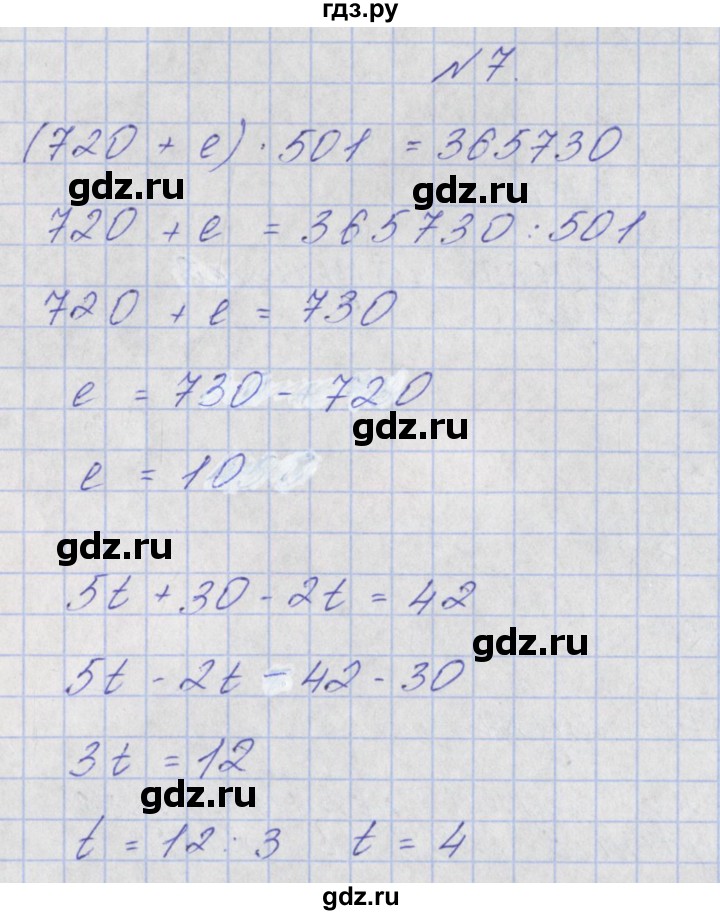 гдз.ру
№ 7.
(720 + e) · 501 = 365730
gdz.ru gdz.ru
720 + e = 365730 : 501
720 + e = 730
e = 730 - 720
gdz.ru
e = 10
gdz.ru
5t + 30 - 2t = 42
gdz.ru
5t - 2t - 42 - 30
3t = 12
gdz.ru
t = 12 : 3 t = 4
gdz.ru